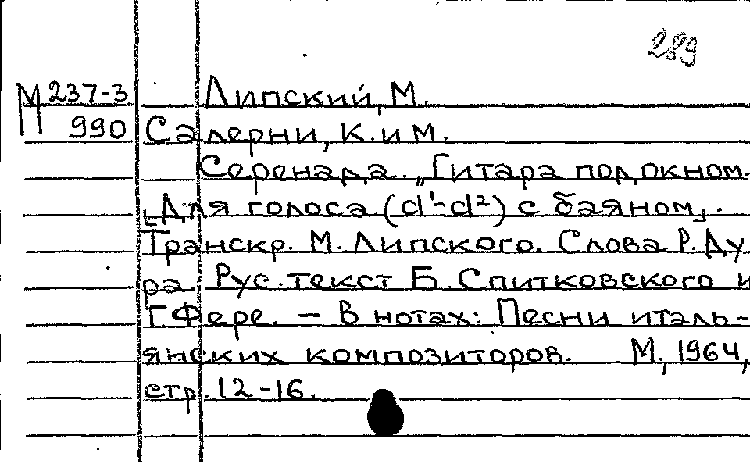 289
М 237-3 Липский, М.
990 Салерни, К. и М.
Серенада. „Гитара под окном.
„Для голоса (d¹-d²) с баяном„.
Транскр. М. Липского. Слова Р. Ду
ра Рус. текст Б. Спитковского и
Г Фере. – В нотах: Песни италь-
янских композиторов. М., 1964,
стр. 12-16.